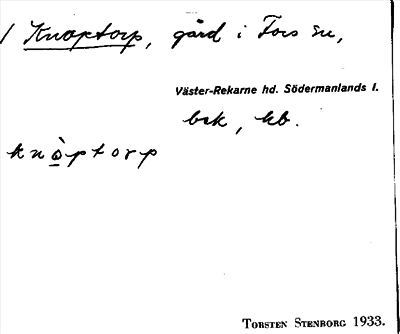 / Knoptorp, gård i Fors sn,
Väster-Rekarne hd. Södermanlands l.
bsk, hb.
knòptorp
TORSTEN STENBORG 1933.